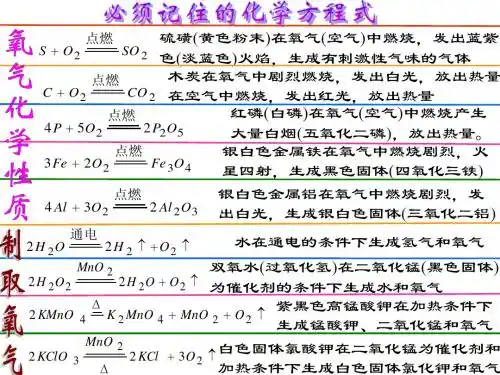 必须记住的化学方程式
氧气化学性质
点燃
S + O2 ═══ SO2
硫磺(黄色粉末)在氧气(空气)中燃烧，发出蓝紫
色(淡蓝色)火焰，生成有刺激性气味的气体
点燃
C + O2 ═══ CO2
木炭在氧气中剧烈燃烧，发出白光，放出热量
在空气中燃烧，发出红光，放出热量
点燃
4P + 5O2 ═══ 2P2O5
红磷(白磷)在氧气(空气)中燃烧产生
大量白烟(五氧化二磷)，放出热量。
点燃
3Fe + 2O2 ═══ Fe3O4
银白色金属铁在氧气中燃烧剧烈，火
星四射，生成黑色固体(四氧化三铁)
点燃
4Al + 3O2 ═══ 2Al2O3
银白色金属铝在氧气中燃烧剧烈，发
出白光，生成银白色固体(三氧化二铝)
制取氧气
通电
2H2O ═══ 2H2 ↑ +O2 ↑
水在通电的条件下生成氢气和氧气
MnO2
2H2O2 ═══ 2H2O + O2 ↑
双氧水(过氧化氢)在二氧化锰(黑色固体)
为催化剂的条件下生成水和氧气
Δ
2KMnO4 ═══ K2MnO4 + MnO2 + O2 ↑
紫黑色高锰酸钾在加热条件下
生成锰酸钾、二氧化锰和氧气
MnO2
2KClO3 ═══ 2KCl + 3O2 ↑
Δ
白色固体氯酸钾在二氧化锰为催化剂和
加热条件下生成白色固体氯化钾和氧气